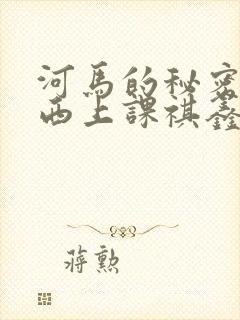 河馬的秘密
西上課祺鑫
蔣勲